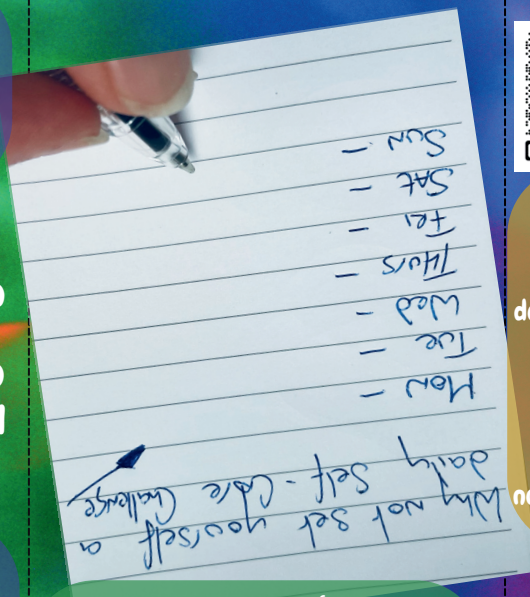 Why not set yourself a
daily Self-Care Challenge
Mon -
Tue -
Wed -
Thurs -
Fri -
Sat -
Sun -